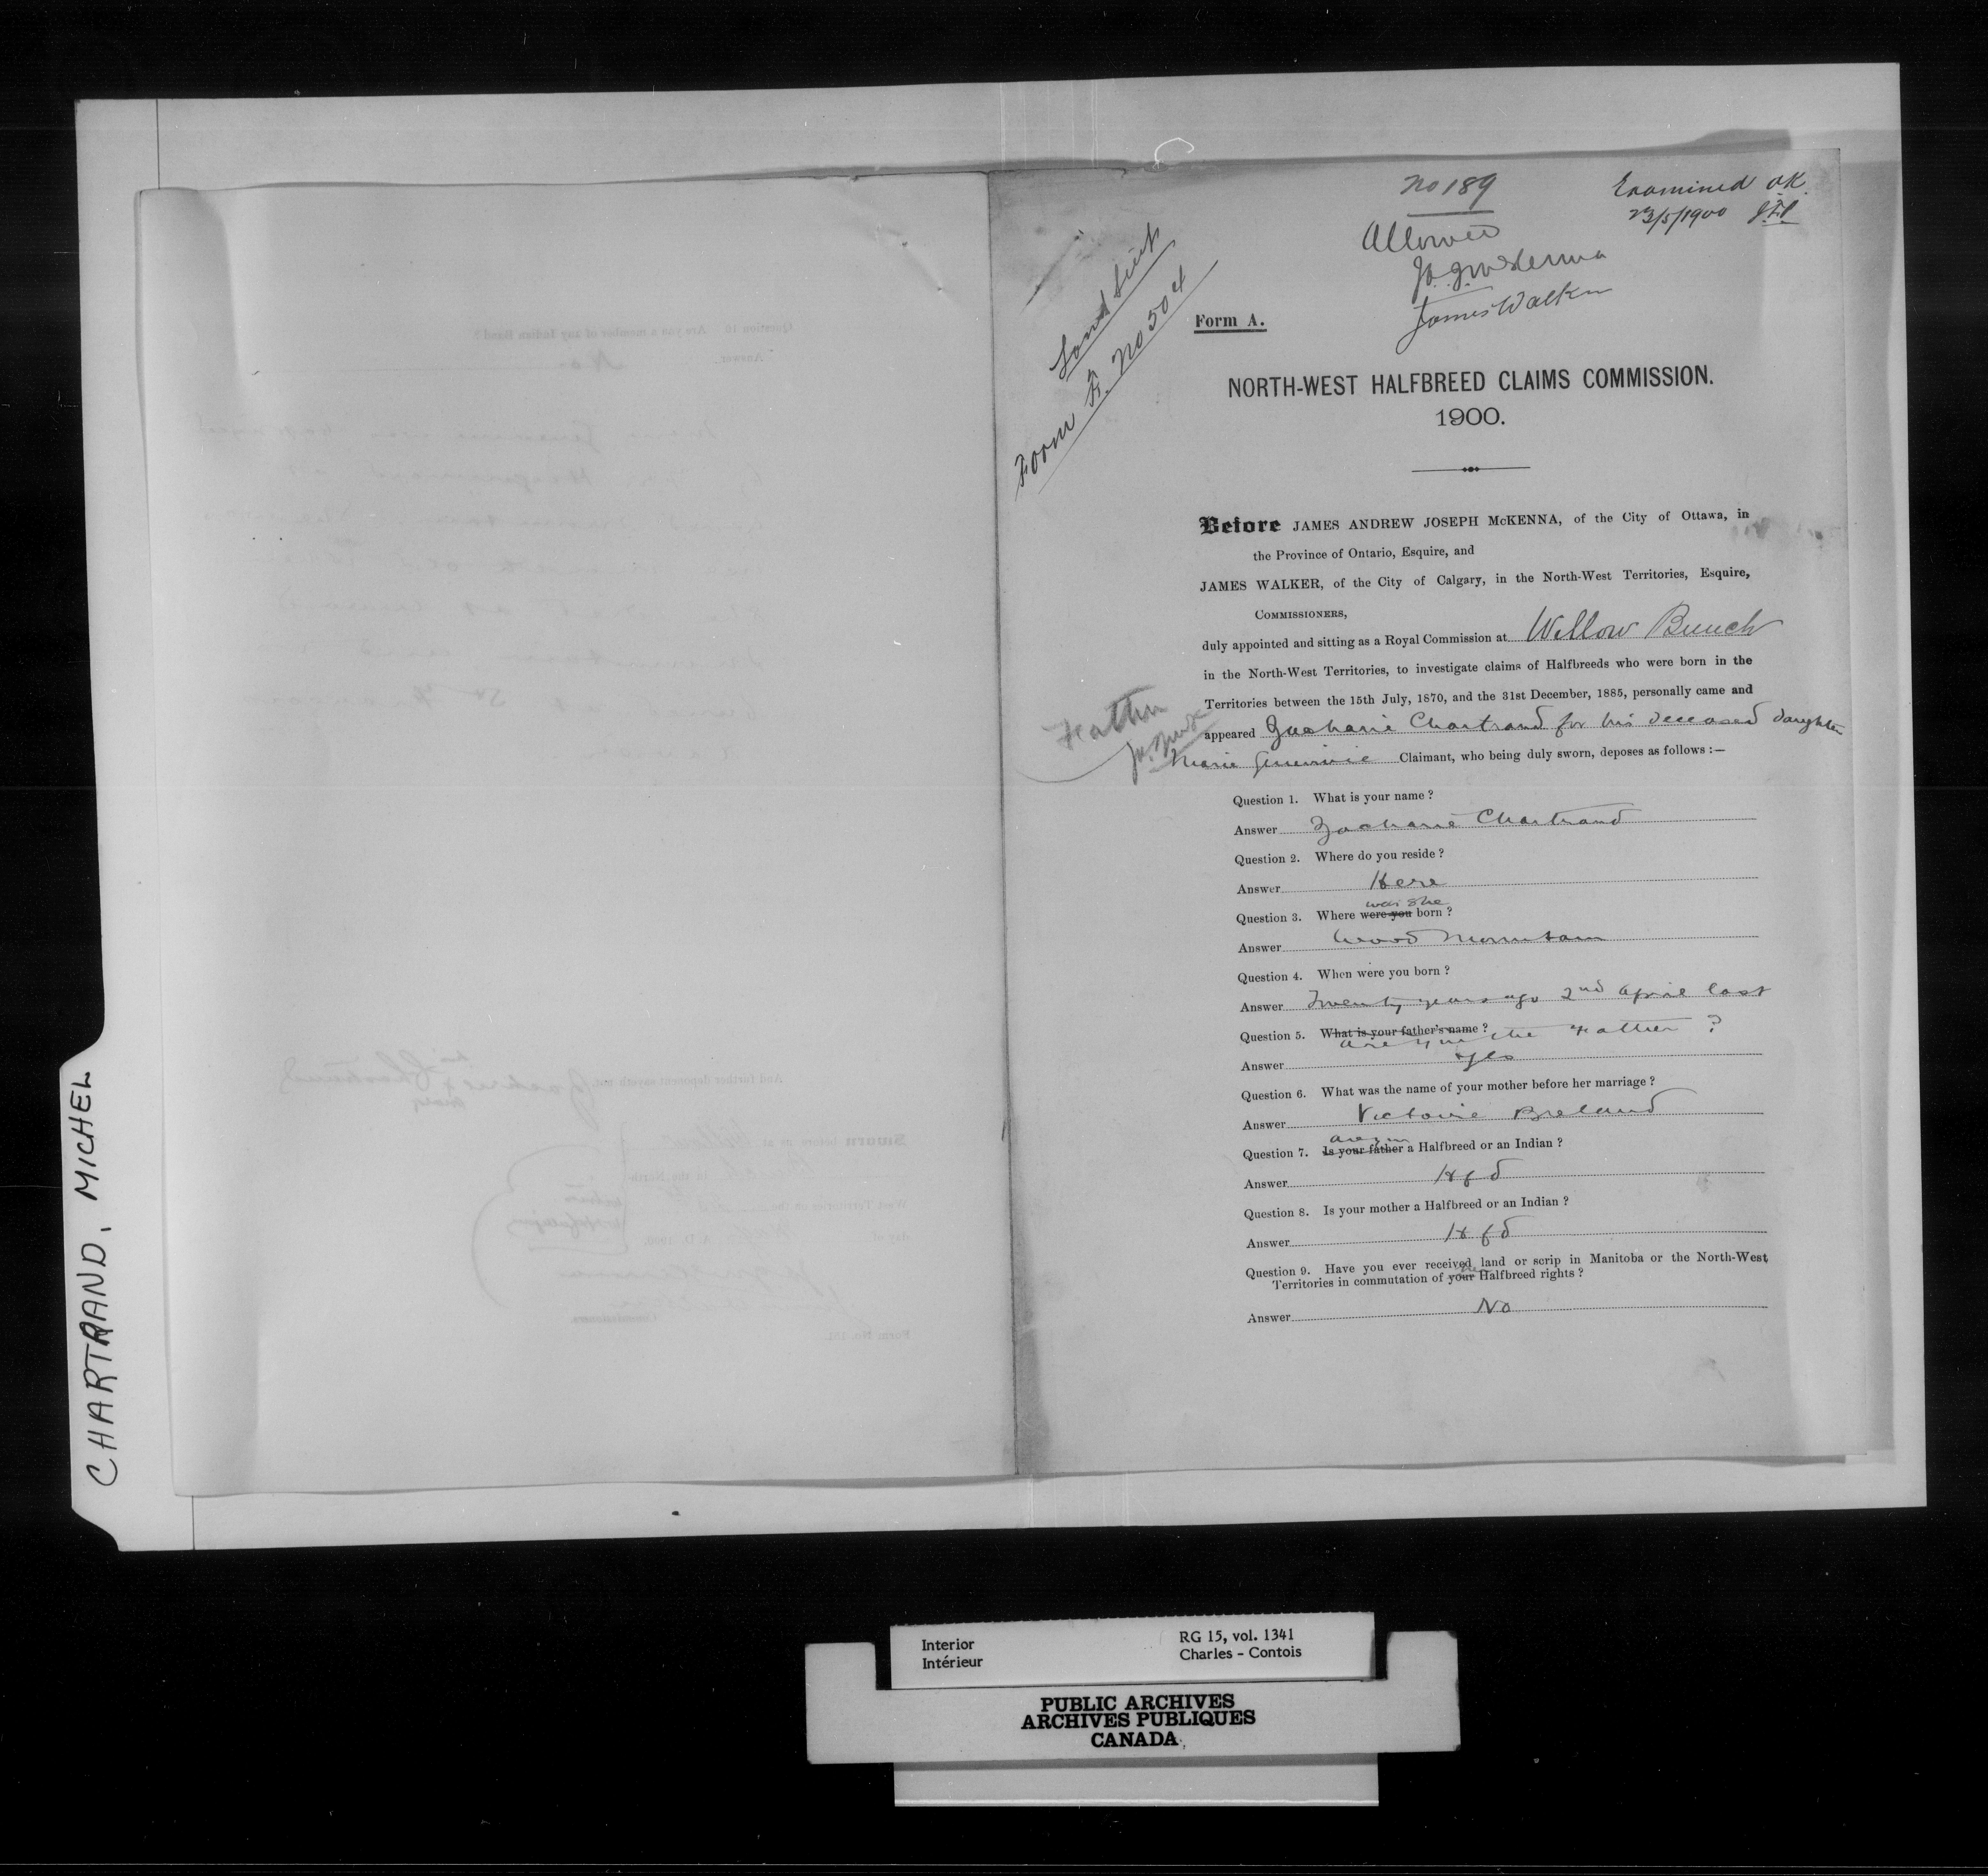 CHARTRAND, MICHEL
No 189
Examined O.K.
23/5/1900 J.F.P.
Allowed
J.A.J. McKenna
James Walker
Land Scrip
Form F. No 504
Form A.
NORTH-WEST HALFBREED CLAIMS COMMISSION.
1900.
Before JAMES ANDREW JOSEPH McKENNA, of the City of Ottawa, in
the Province of Ontario, Esquire, and
JAMES WALKER, of the City of Calgary, in the North-West Territories, Esquire,
COMMISSIONERS,
duly appointed and sitting as a Royal Commission at Willow Bunch
in the North-West Territories, to investigate claims of Halfbreeds who were born in the
Territories between the 15th July, 1870, and the 31st December, 1885, personally came and
Father
appeared Zacharie Chartrand for his deceased daughter
Marie Genevieve Claimant, who being duly sworn, deposes as follows :—
Question 1. What is your name ?
Answer Zacharie Chartrand
Question 2. Where do you reside ?
Answer Here
was she
Question 3. Where were you born ?
Answer Wood Mountain
Question 4. When were you born ?
Answer Twenty years ago 2nd April last
Question 5. What is your father's name ?
are you the Father ?
Answer Yes
Question 6. What was the name of your mother before her marriage ?
Answer Victoire Breland
are you
Question 7. Is your father a Halfbreed or an Indian ?
Answer Hfd
Question 8. Is your mother a Halfbreed or an Indian ?
Answer Hfd
Question 9. Have you ever received land or scrip in Manitoba or the North-West
Territories in commutation of your Halfbreed rights ?
Answer No
Interior
Intérieur
RG 15, vol. 1341
Charles - Contois
PUBLIC ARCHIVES
ARCHIVES PUBLIQUES
CANADA